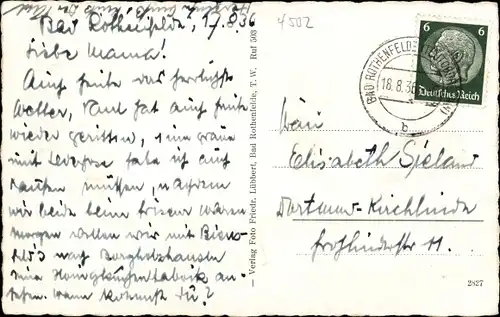 Bad Rothenfelde, 17.8.36
Liebe Mama!
Auch heute das herrlichste
Wetter, Paul hat auch heute
wieder geritten, eine graue
mit Lederhose habe ich auch
kaufen müssen, nachdem
wir beide beim Friseur waren
morgen wollen wir mit
nach Borgholzhausen
eine Honigkuchenfabrik an-
sehen. Wann kommst Du?
— Verlag Foto Friedr. Lübbert, Bad Rothenfelde, T. W. Ruf 503
4502
6 6
Deutsches Reich
BAD ROTHENFELDE
18.8.36
b
Frau
Elisabeth Sieland
Dortmund-Kirchlinde
Frohlinderstr 11.
2827